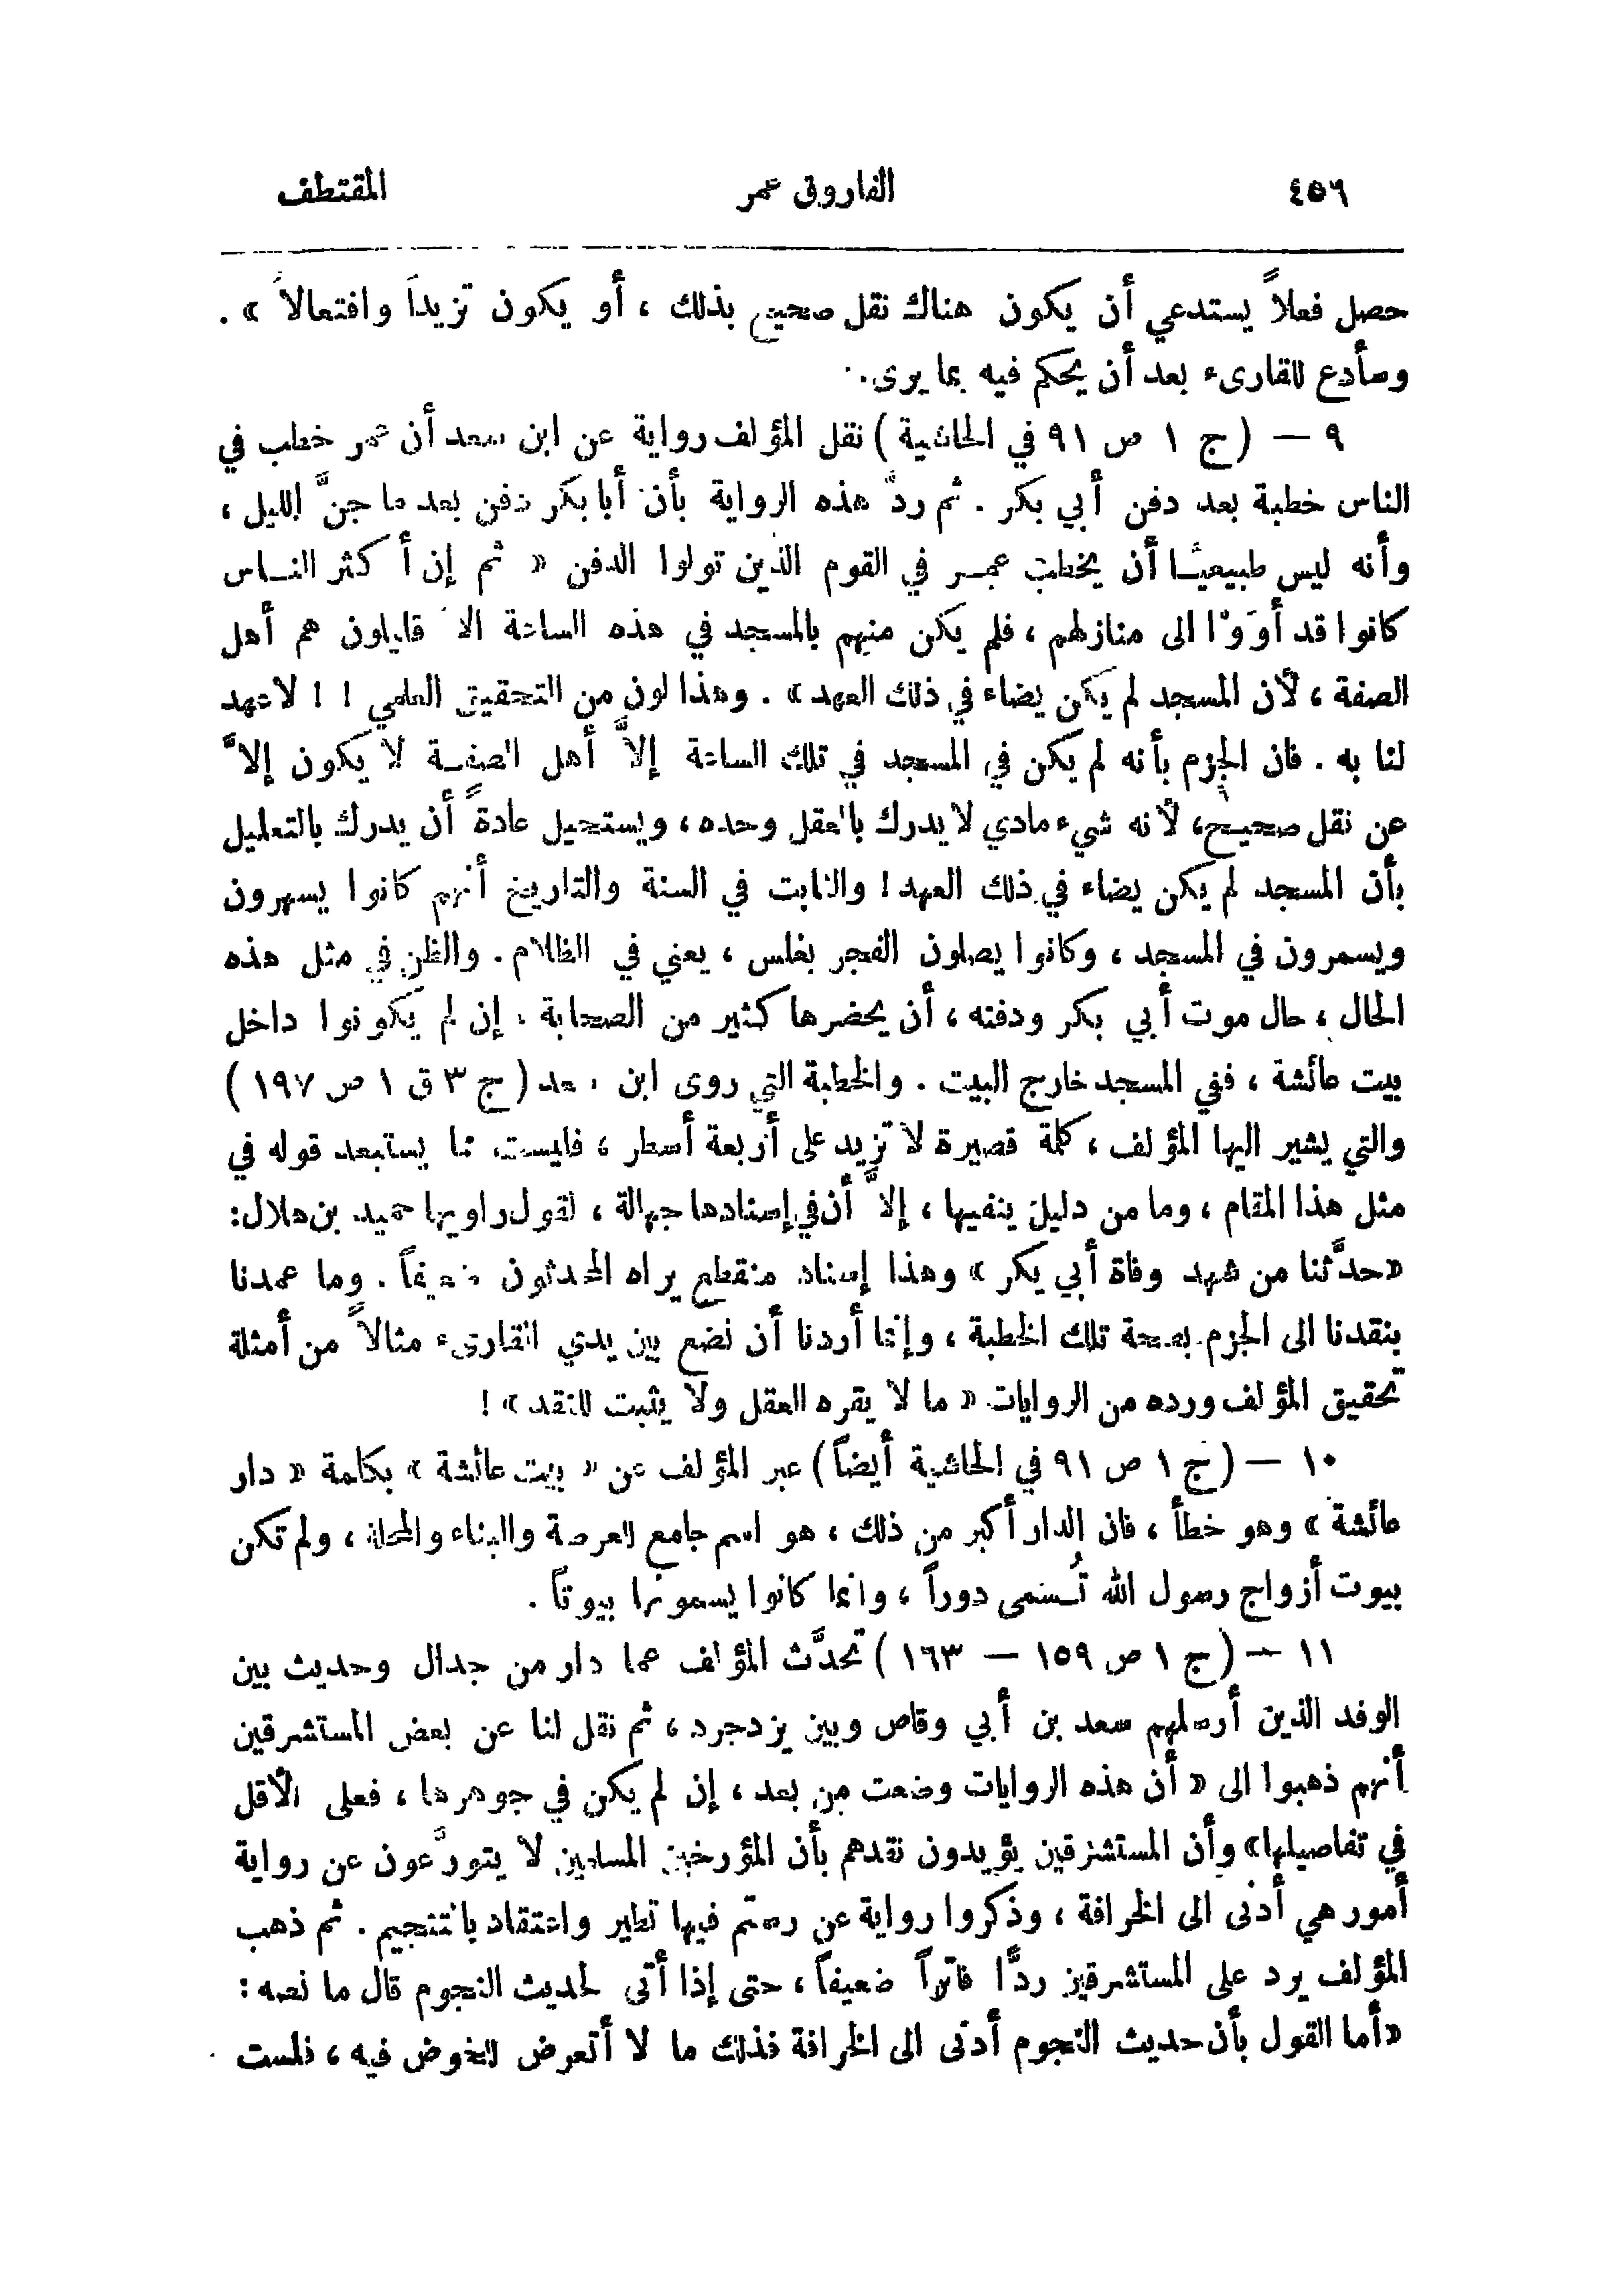 ٤٥٦ الفاروق عمر المقتطف
حصل فعلاً يستدعي أن يكون هناك نقل صحيح بذلك ، أو يكون تزيداً وافتعالاً » .
وسأدع للقارىء بعد أن يحكم فيه بما يرى .
٩ — ( ج ١ ص ٩١ في الحاشية ) نقل المؤلف رواية عن ابن سعد أن عمر خطب في
الناس خطبة بعد دفن أبي بكر . ثم ردَّ هذه الرواية بأن أبا بكر دفن بعد ما جنَّ الليل ،
وأنه ليس طبيعيًّا أن يخطب عمر في القوم الذين تولوا الدفن « ثم إن أكثر الناس
كانوا قد أوَوْا الى منازلهم ، فلم يكن منهم بالمسجد في هذه الساعة الا قليلون هم أهل
الصفة ، لأن المسجد لم يكن يضاء في ذلك العهد » . وهذا لون من التحقيق العلمي ! ! لا عهد
لنا به . فان الجزم بأنه لم يكن في المسجد في تلك الساعة إلاَّ أهل الصفة لا يكون إلاَّ
عن نقل صحيح ، لأنه شيء مادي لا يدرك بالعقل وحده ، ويستحيل عادةً أن يدرك بالتعليل
بأن المسجد لم يكن يضاء في ذلك العهد ! والثابت في السنة والتاريخ أنهم كانوا يسهرون
ويسمرون في المسجد ، وكانوا يصلون الفجر بغلس ، يعني في الظلام . والظن في مثل هذه
الحال ، حال موت أبي بكر ودفنه ، أن يحضرها كثير من الصحابة . إن لم يكونوا داخل
بيت عائشة ، ففي المسجد خارج البيت . والخطبة التي روى ابن سعد ( ج ٣ ق ١ ص ١٩٧ )
والتي يشير اليها المؤلف ، كلمة قصيرة لا تزيد على أربعة أسطر ، فليست مما يستبعد قوله في
مثل هذا المقام ، وما من دليل ينفيها ، إلاَّ أن في إسنادها جهالة ، لقول راويها حميد بن هلال :
« حدَّثنا من شهد وفاة أبي بكر » وهذا إسناد منقطع يراه المحدثون ضعيفاً . وما عمدنا
بنقدنا الى الجزم بصحة تلك الخطبة ، وإنما أردنا أن نضع بين يدي القارىء مثالاً من أمثلة
تحقيق المؤلف ورده من الروايات « ما لا يقره العقل ولا يثبت للنقد » !
١٠ — ( ج ١ ص ٩١ في الحاشية أيضاً ) عبر المؤلف عن « بيت عائشة » بكلمة « دار
عائشة » وهو خطأ ، فان الدار أكبر من ذلك ، هو اسم جامع للعرصة والبناء والمحلة ، ولم تكن
بيوت أزواج رسول الله تُسمى دوراً ، وانما كانوا يسمونها بيوتاً .
١١ — ( ج ١ ص ١٥٩ — ١٦٣ ) تحدَّث المؤلف عما دار من جدال وحديث بين
الوفد الذين أرسلهم سعد بن أبي وقاص وبين يزدجرد ، ثم نقل لنا عن بعض المستشرقين
أنهم ذهبوا الى « أن هذه الروايات وضعت من بعد ، إن لم يكن في جوهرها ، فعلى الأقل
في تفاصيلها » وأن المستشرقين يؤيدون نقدهم بأن المؤرخين المسلمين لا يتورَّعون عن رواية
أمور هي أدنى الى الخرافة ، وذكروا رواية عن رستم فيها تطير واعتقاد بالتنجيم . ثم ذهب
المؤلف يرد على المستشرقين ردًّا فاتراً ضعيفاً ، حتى إذا أتى لحديث النجوم قال ما نصه :
« أما القول بأن حديث النجوم أدنى الى الخرافة فذلك ما لا أتعرض للخوض فيه ، فلست